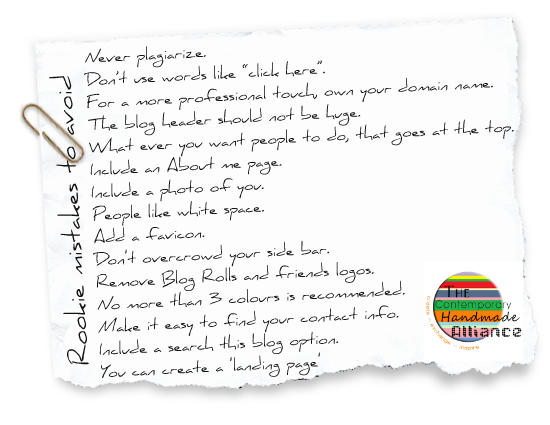 Rookie mistakes to avoid
Never plagiarize.
Don't use words like "click here".
For a more professional touch, own your domain name.
The blog header should not be huge.
What ever you want people to do, that goes at the top.
Include an About me page.
Include a photo of you.
People like white space.
Add a favicon.
Don't overcrowd your side bar.
Remove Blog Rolls and friends logos.
No more than 3 colours is recommended.
Make it easy to find your contact info.
Include a search this blog option.
You can create a 'landing page'
THE
Contemporary
Handmade
Alliance